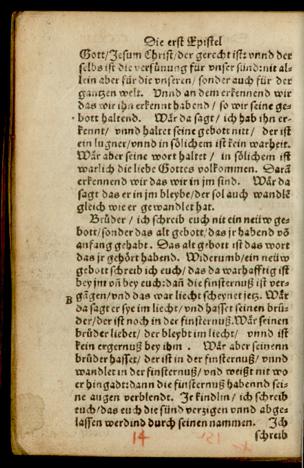 Die erst Epistel
Gott/Jesum Christ/der gerecht ist: vnnd der
selbs ist die versünung für vnser sünd: nit al-
lein aber für die vnseren/sonder auch für der
gantzen welt. Vnnd an dem erkennend wir
das wir jhn erkennt habend/so wir seine ge-
bott haltend. Wär da sagt/ich hab jhn er-
kennt/vnnd haltet seine gebott nitt/der ist
ein lugner/vnnd in sölichem ist kein warheit.
Wär aber seine wort haltet/in sölichem ist
warlich die liebe Gottes volkommen. Darā
erkennend wir das wir in jm sind. Wär da
sagt das er in jm bleybe/der sol auch wandlē
gleich wie er gewandlet hat.
Brüder/ich schreib euch nit ein neüw ge-
bott/sonder das alt gebott/das jr habend vō
anfang gehabt. Das alt gebott ist das wort
das jr gehört habend. Widerumb/ein neüw
gebott schreib ich euch/das da warhafftig ist
bey jm vn̄ bey euch: dañ die finsternuß ist ver-
B gāgen/vnd das war liecht scheynet jetz. Wär
da sagt er sye im liecht/vnd hasset seinen brü-
der/der ist noch in der finsternuß. Wär seinen
brüder liebet/der bleybt im liecht/vnnd ist
kein ergernuß bey jhm. Wär aber seinenn
brüder hasset/der ist in der finsternuß/vnnd
wandlet in der finsternuß/vnd weißt nit wo
er hingadt: dann die finsternuß habennd sei-
ne augen verblendt. Jr kindlin/ich schreib
euch/das euch die sünd verzigen vnnd abge-
lassen werdind durch seinen nammen. Ich
schreib
14